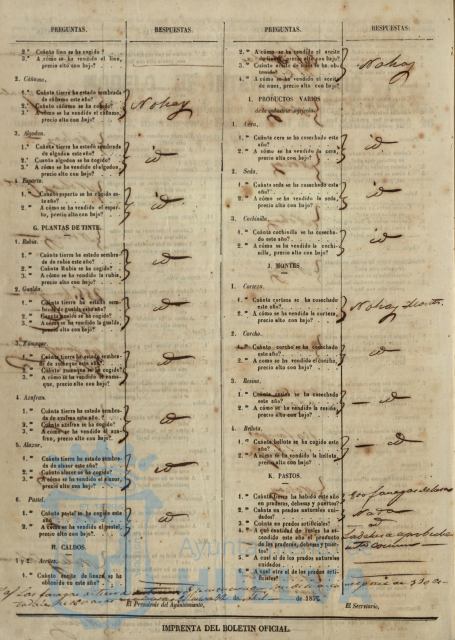 PREGUNTAS. RESPUESTAS.
2.º Cuánto lino se ha cogido?
3.º A cómo se ha vendido el lino, precio alto con bajo?
2. Cáñamo.
1.º Cuánta tierra ha estado sembrada de cáñamo este año?
2.º Cuánto cáñamo se ha cogido?
3.º A cómo se ha vendido el cáñamo, precio alto con bajo?
No hay
3. Algodon.
1.º Cuánta tierra ha estado sembrada de algodon este año?
2.º Cuánto algodon se ha cogido?
3.º A cómo se ha vendido el algodon, precio alto con bajo?
id
4. Esparto.
1.º Cuánto esparto se ha cogido este año?
2.º A cómo se ha vendido el esparto, precio alto con bajo?
id
G. PLANTAS DE TINTE.
1. Rubia.
1.º Cuánta tierra ha estado sembra de rubia este año?
2.º Cuánta Rubia se ha cogido?
3.º A cómo se ha vendido la rubia, precio alto con bajo?
id
2. Gualda.
1.º Cuánta tierra ha estado sembrada de gualda este año?
2.º Cuánta gualda se ha cogido?
3.º A cómo se ha vendido la gualda, precio alto con bajo?
id
3. Zumaque.
1.º Cuánta tierra ha estado sembrada de zumaque este año?
2.º Cuánto zumaque se ha cogido?
3.º A cómo se ha vendido el zumaque, precio alto con bajo?
id
4. Azafran.
1.º Cuánta tierra ha estado sembrada de azafran este año?
2.º Cuánto azafran se ha cogido?
3.º A cómo se ha vendido el azafran, precio alto con bajo?
id
5. Alazor.
1.º Cuánta tierra ha estado sembrada de alazor este año?
2.º Cuánto alazor se ha cogido?
3.º A cómo se ha vendido el alazor, precio alto con bajo?
id
6. Pastel.
1.º Cuánto pastel se ha cogido este año?
2.º A cómo se ha vendido el pastel, precio alto con bajo?
id
H. CALDOS.
1 y 2. Aceites.
1.º Cuánto aceite de linaza se ha obtenido este año?
PREGUNTAS. RESPUESTAS.
2.º A cómo se ha vendido el aceite de linaza, precio alto con bajo?
3.º Cuánto aceite de nuez se ha obtenido?
4.º A cómo se ha vendido el aceite de nuez, precio alto con bajo?
No hay
I. PRODUCTOS VARIOS
de la industria agrícola.
1. Cera.
1.º Cuánta cera se ha cosechado este año?
2.º A cómo se ha vendido la cera, precio alto con bajo?
id
2. Seda.
1.º Cuánta seda se ha cosechado este año?
2.º A cómo se ha vendido la seda, precio alto con bajo?
id
3. Cochinilla.
1.º Cuánta cochinilla se ha cosechado este año?
2.º A cómo se ha vendido la cochinilla, precio alto con bajo?
id
J. MONTES.
1. Corteza.
1.º Cuánta corteza se ha cosechado este año?
2.º A cómo se ha vendido la corteza, precio alto con bajo?
No hay
2. Corcho.
1.º Cuánto corcho se ha cosechado este año?
2.º A cómo se ha vendido el corcho, precio alto con bajo?
id
3. Resina.
1.º Cuánta resina se ha cosechado este año?
2.º A cómo se ha vendido la resina, precio alto con bajo?
id
4. Bellota.
1.º Cuánta bellota se ha cogido este año?
2.º A cómo se ha vendido la bellota, precio alto con bajo?
id
K. PASTOS.
1.º Cuánta tierra ha habido este año en praderas, dehesas y puertos?
2.º Cuánta en prados naturales cuidados?
3.º Cuánta en prados artificiales?
4.º A qué cantidad de reales ha ascendido este año el producto de las praderas, dehesas y puertos?
5.º A cuál el de los prados naturales cuidados?
6.º A cuál otro el de los prados artificiales?
Nada
id
de 185
El Presidente del Ayuntamiento,
El Secretario,
IMPRENTA DEL BOLETIN OFICIAL.